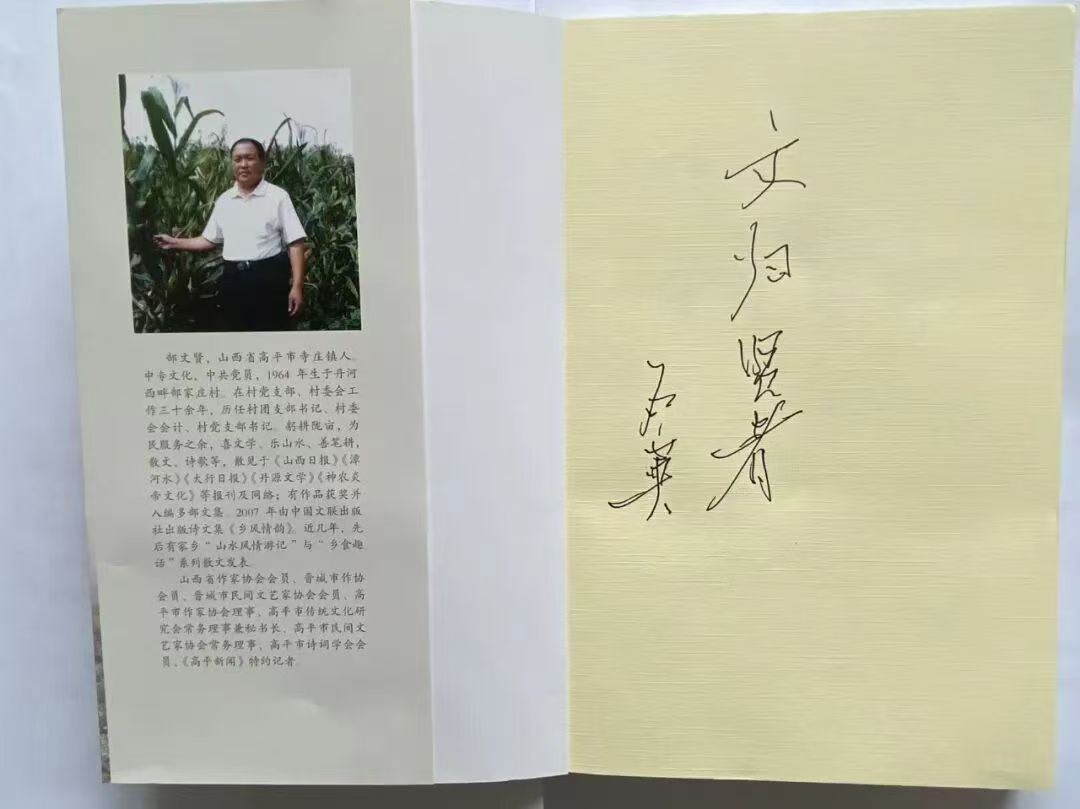 郜文贤，山西省高平市寺庄镇人。
中专文化，中共党员，1964 年生于丹河
西畔郜家庄村。在村党支部、村委会工
作三十余年，历任村团支部书记、村委
会会计、村党支部书记。躬耕陇亩，为
民服务之余，喜文学、乐山水、善笔耕，
散文、诗歌等，散见于《山西日报》《漳
河水》《太行日报》《丹源文学》《神农炎
帝文化》等报刊及网络；有作品获奖并
入编多部文集。2007 年由中国文联出版
社出版诗文集《乡风情韵》。近几年，先
后有家乡“山水风情游记”与“乡食趣
话”系列散文发表。
山西省作家协会会员、晋城市作协
会员、晋城市民间文艺家协会会员、高
平市作家协会理事、高平市传统文化研
究会常务理事兼秘书长、高平市民间文
艺家协会常务理事、高平市诗词学会会
员、《高平新闻》特约记者。
文归贤者
英